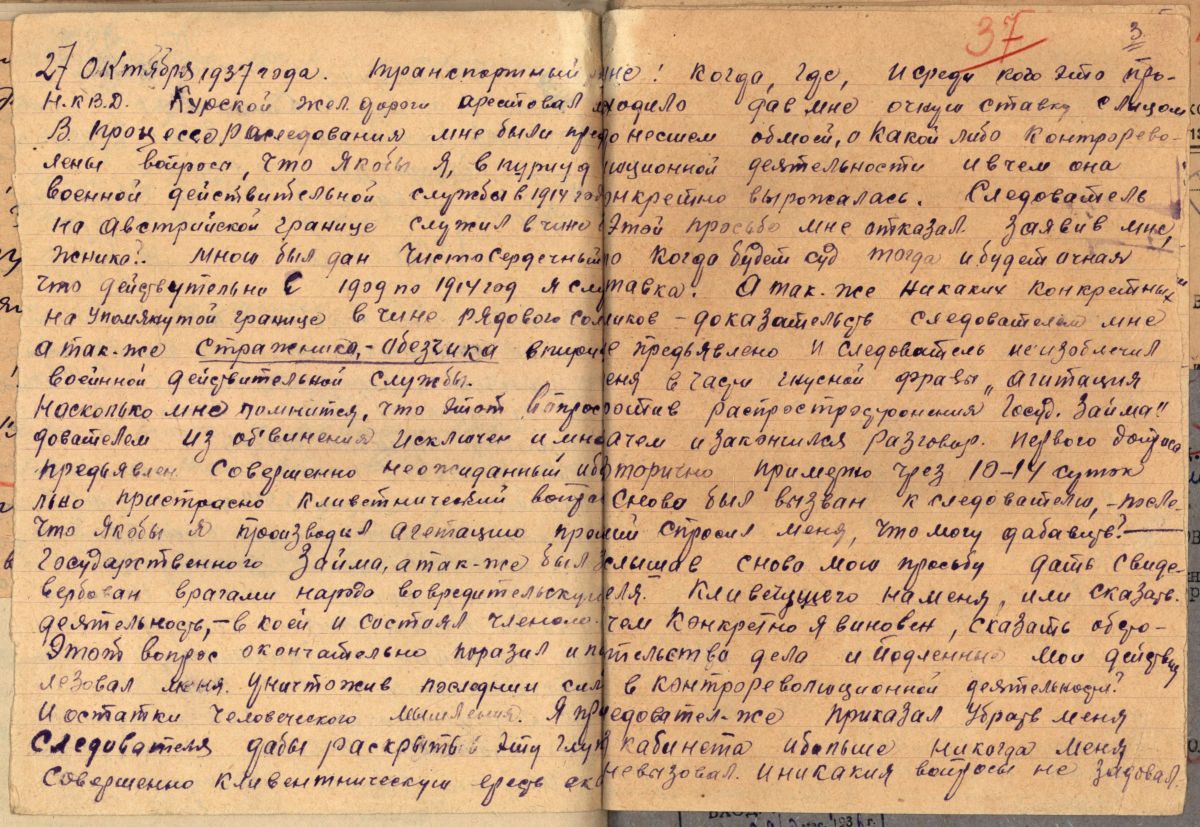 37
3
27 Октября 1937 года. Транспортный
Н.К.В.Д. Курской жел. дороги арестовал
В процессе расследования мне были пред
лены вопроса, что якобы я, в пириуд
военной действительной службы в 1914 год
на Австрийской границе служил в чине
жника?. мною был дан чистосердечный
что действутельно С 19 год по 1914 год я слу
на упомянутой границе в чине рядового сол
а так-же стражника,-абезчика в пириуд
воинной действительной службы.
насколько мне помнится, что этот вопрос
дователем из об'винения исключен и мне
предъявлен совершенно неожиданный и
льно пристрасно кливетнический вопрос
что якобы я производил агетацию про
Государственного Займа, а так-же был за
вербован врагами народа во вредительскую
деятельность,- в коей и состоял членом.
Этот вопрос окончательно поразил и
лезовал меня. Уничтожив последнии сил
и остатки человеческого мышления. Я пр
следователя дабы раскрыть эту глу
совершенно кливентническую ересь ска
мне! когда, где, и среди кого это про-
ходило дав мне очную ставку с лицом
донесшем обмоей, о какой либо контрорево-
люционной деятельности и в чем она
конкретно вырожалась. Следователь
этой просьбо мне отказал. Заявив мне,
что когда будет суд тогда и будет очная
ставка. А так-же никаких конкретных
- доказательств следователем мне
не предъявлено и следователь не изобличил
меня в части гнусной фразы „агитация
против распростросуронения Госуд. Займа"
на чем и закончился разговор. первого допроса
вторично примерно чрез 10-14 суток
Снова был вызван к следователи, -после-
дний спросил меня, что могу дабавить?
Услышав снова мою просьбу дать свиде-
теля. Кливещущего на меня, или сказать.
в чем конкретно я виновен, сказать обсто-
ятельства дела и подленные мои действия
в контрореволюционной деятельности?
Следовател-же приказал убрать меня
из кабинета и больше никогда меня
невызовал. и никакия вопросы не зядовал.